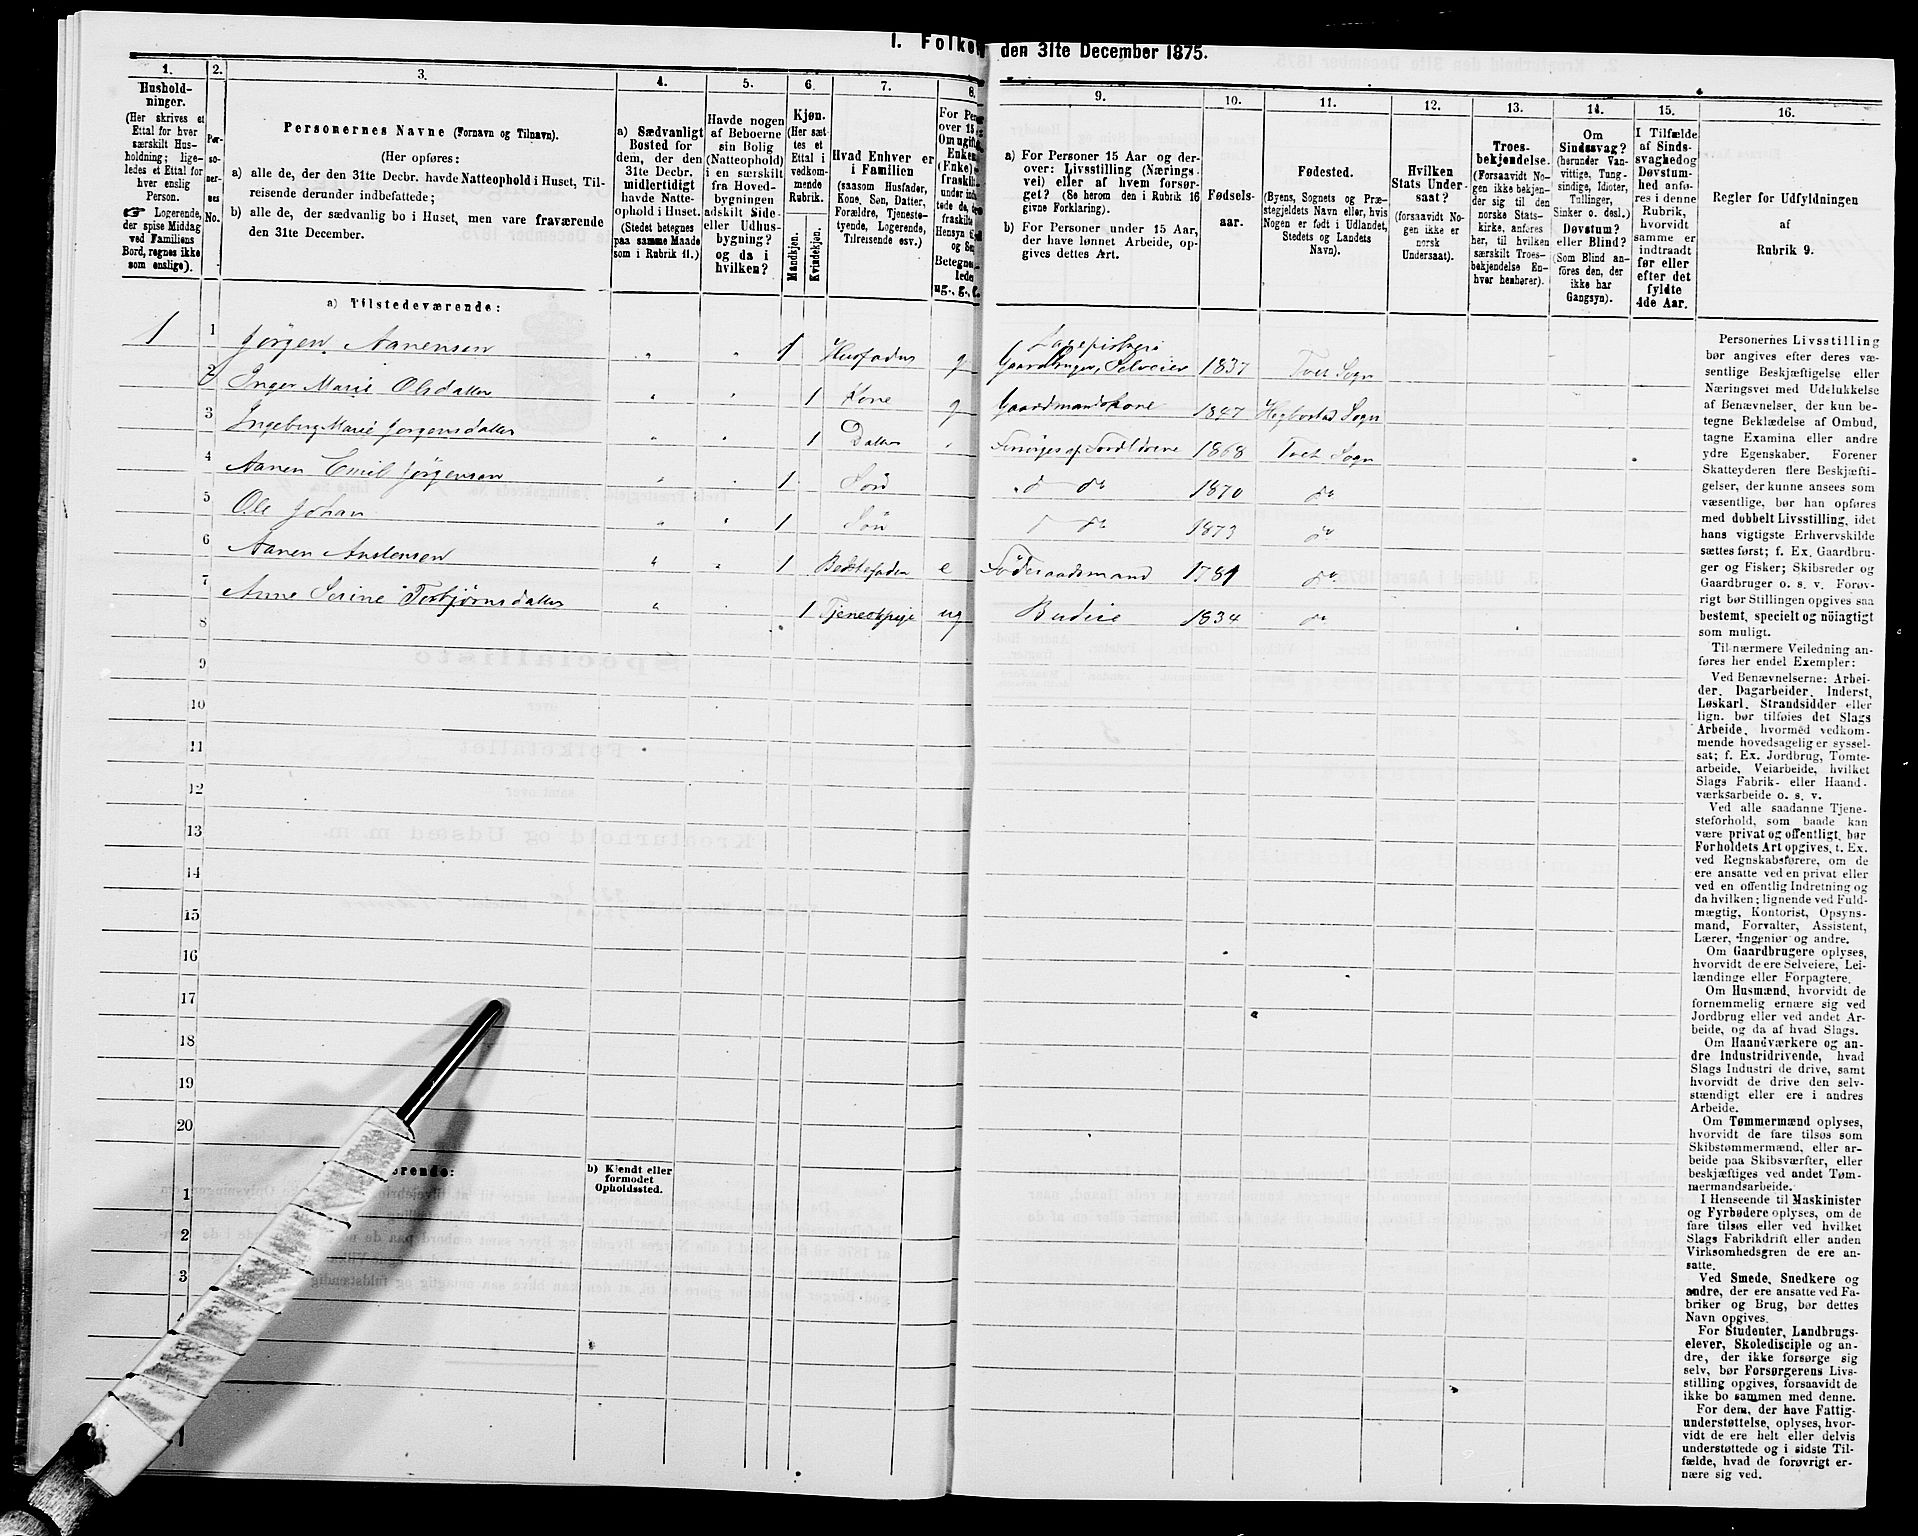 I. Folke den 31te December 1875.
1.
Hushold-
ninger.
(Her skrives et
Ettal for hver
særskilt Hus-
holdning; lige-
ledes et Ettal for
hver enslig
Person.
Logerende,
der spise Middag
ved Familiens
Bord, regnes ikke
som enslige).
2.
Per-
so-
ner-
nes
No.
3.
Personernes Navne (Fornavn og Tilnavn).
(Her opføres:
a) alle de, der den 31te Decbr. havde Natteophold i Huset, Til-
reisende derunder indbefattede;
b) alle de, der sædvanlig bo i Huset, men vare fraværende
den 31te December.
4.
a) Sædvanligt
Bosted for
dem, der den
31te Decbr.
midlertidigt
havde Natte-
ophold i Huset.
(Stedet betegnes
paa samme Maade
som i Rubrik 11.)
5.
Havde nogen
af Beboerne
sin Bolig
(Natteophold)
i en særskilt
fra Hoved-
bygningen
adskilt Side-
eller Udhus-
bygning?
og da i
hvilken?
6.
Kjøn.
(Her sæt-
tes et
Ettal i
vedkom-
mende
Rubrik.
Mandkjøn.
Kvindekjøn.
7.
Hvad Enhver er
i Familien
(saasom Husfader,
Kone, Søn, Datter,
Forældre, Tjeneste-
tyende, Logerende,
Tilreisende osv.)
8.
For Pe
over 15
Om ugift
Enke
(Enke)
fraskilt
under ind
tede de,
fraskilte
Hensyn
og
Betegn
lede
ug., g., e.
9.
a) For Personer 15 Aar og der-
over: Livsstilling (Nærings-
vei) eller af hvem forsør-
get? (Se herom den i Rubrik 16
givne Forklaring).
b) For Personer under 15 Aar,
der have lønnet Arbeide, op-
gives dettes Art.
10.
Fødsels-
aar.
11.
Fødested.
(Byens, Sognets og Præ-
stegjeldets Navn eller, hvis
Nogen er født i Udlandet,
Stedets og Landets
Navn).
12.
Hvilken
Stats Under-
saat?
(forsaavidt No-
gen ikke er
norsk
Undersaat).
13.
Troes-
bekjendelse.
(Forsaavidt No-
gen ikke bekjen-
der sig til den
norske Stats-
kirke, anføres
her, til hvilken
særskilt Troes-
bekjendelse En-
hver henhører).
14.
Om
Sindssvag?
(herunder Van-
vittige, Tung-
sindige, Idioter,
Tullinger,
Sinker o. desl.)
Døvstum?
eller Blind?
(Som Blind an-
føres den, der
ikke har
Gangsyn).
15.
I Tilfælde
af Sinds-
svaghed og
Døvstum-
hed anfø-
res i denne
Rubrik,
hvorvidt
samme er
indtraadt
før eller
efter det
fyldte
4de Aar.
16.
Regler for Udfyldningen
af
Rubrik 9.
a) Tilstedeværende:
1 1 Jørgen Aanensen " " 1 Husfader g Gaardbruger, Selveier 1837 Tvet Sogn
2 Inger Marie Olsdatter " " 1 Kone g Gaardmandskone 1847 Hegbostad Sogn
3 Ingeborg Marie Jørgensdatter " " 1 Datter " Forsørges af Forældrene 1868 Tvet Sogn
4 Aanen Emil Jørgensen " " 1 Søn do do 1870 do
5 Ole Johan " " 1 Søn do do 1873 do
6 Aanen Anstensen " " 1 Bedstefader e Föderaadsmand 1781 do
7 Anne Serine Torbjørnsdatter " 1 Tjenestepige ug Budeie 1834 do
8
9
10
11
12
13
14
15
16
17
18
19
20
ærende:
b) Kjendt eller
formodet
Opholdssted.
1
2
3
4
Personernes Livsstilling
bør angives efter deres væ-
sentlige Beskjæftigelse eller
Næringsvei med Udelukkelse
af Benævnelser, der kun be-
tegne Beklædelse af Ombud,
tagne Examina eller andre
ydre Egenskaber. Forener
Skatteyderen flere Beskjæfti-
gelser, der kunne ansees som
væsentlige, bør han opføres
med dobbelt Livsstilling, idet
hans vigtigste Erhvervskilde
sættes først; f. Ex. Gaardbru-
ger og Fisker; Skibsreder og
Gaardbruger o. s. v. Forøv-
rigt bør Stillingen opgives saa
bestemt, specielt og nöiagtigt
som muligt.
Til nærmere Veiledning an-
føres her endel Exempler:
Ved Benævnelserne: Arbei-
der, Dagarbeider, Inderst,
Løskarl, Strandsidder eller
lign. bør tilføies det Slags
Arbeide, hvormed vedkom-
mende hovedsagelig er syssel-
sat; f. Ex. Jordbrug, Tomte-
arbeide, Veiarbeide, hvilket
Slags Fabrik- eller Haand-
værksarbeide o. s. v.
Ved alle saadanne Tjene-
steforhold, som baade kan
være privat og offentligt, bør
Forholdets Art opgives, f. Ex.
ved Regnskabsførere, om de
ere ansatte ved en privat eller
ved en offentlig Indretning og
da hvilken; lignende ved Fuld-
mægtig, Kontorist, Opsyns-
mand, Forvalter, Assistent,
Lærer, Ingeniør og andre.
Om Gaardbrugere oplyses,
hvorvidt de ere Selveiere, Lei-
lændinge eller Forpagtere.
Om Husmænd, hvorvidt de
fornemmelig ernære sig ved
Jordbrug eller ved andet Ar-
beide, og da af hvad Slags.
Om Haandværkere og an-
dre Industridrivende, hvad
Slags Industri de drive, samt
hvorvidt de drive den selv-
stændigt eller ere i andres
Arbeide.
Om Tømmermænd oplyses,
hvorvidt de fare tilsøs som
Skibstømmermænd, eller ar-
beide paa Skibsværfter, eller
beskjæftiges ved andet Tøm-
mermandsarbeide.
I Henseende til Maskinister
og Fyrbødere oplyses, om de
fare tilsøs eller ved hvilket
Slags Fabrikdrift eller anden
Virksomhedsgren de ere an-
satte.
Ved Smede, Snedkere og
andre, der ere ansatte ved Fa-
briker og Brug, bør dettes
Navn opgives.
For Studenter, Landbrugs-
elever, Skoledisciple og an-
dre, der ikke forsørge sig
selv, bør Forsørgerens Livs-
stilling opgives, forsaavidt de
ikke bo sammen med denne.
For dem, der have Fattig-
understøttelse, oplyses, hvor-
vidt de ere helt eller delvis
understøttede og i sidste Til-
fælde, hvad de forøvrigt er-
nære sig ved.